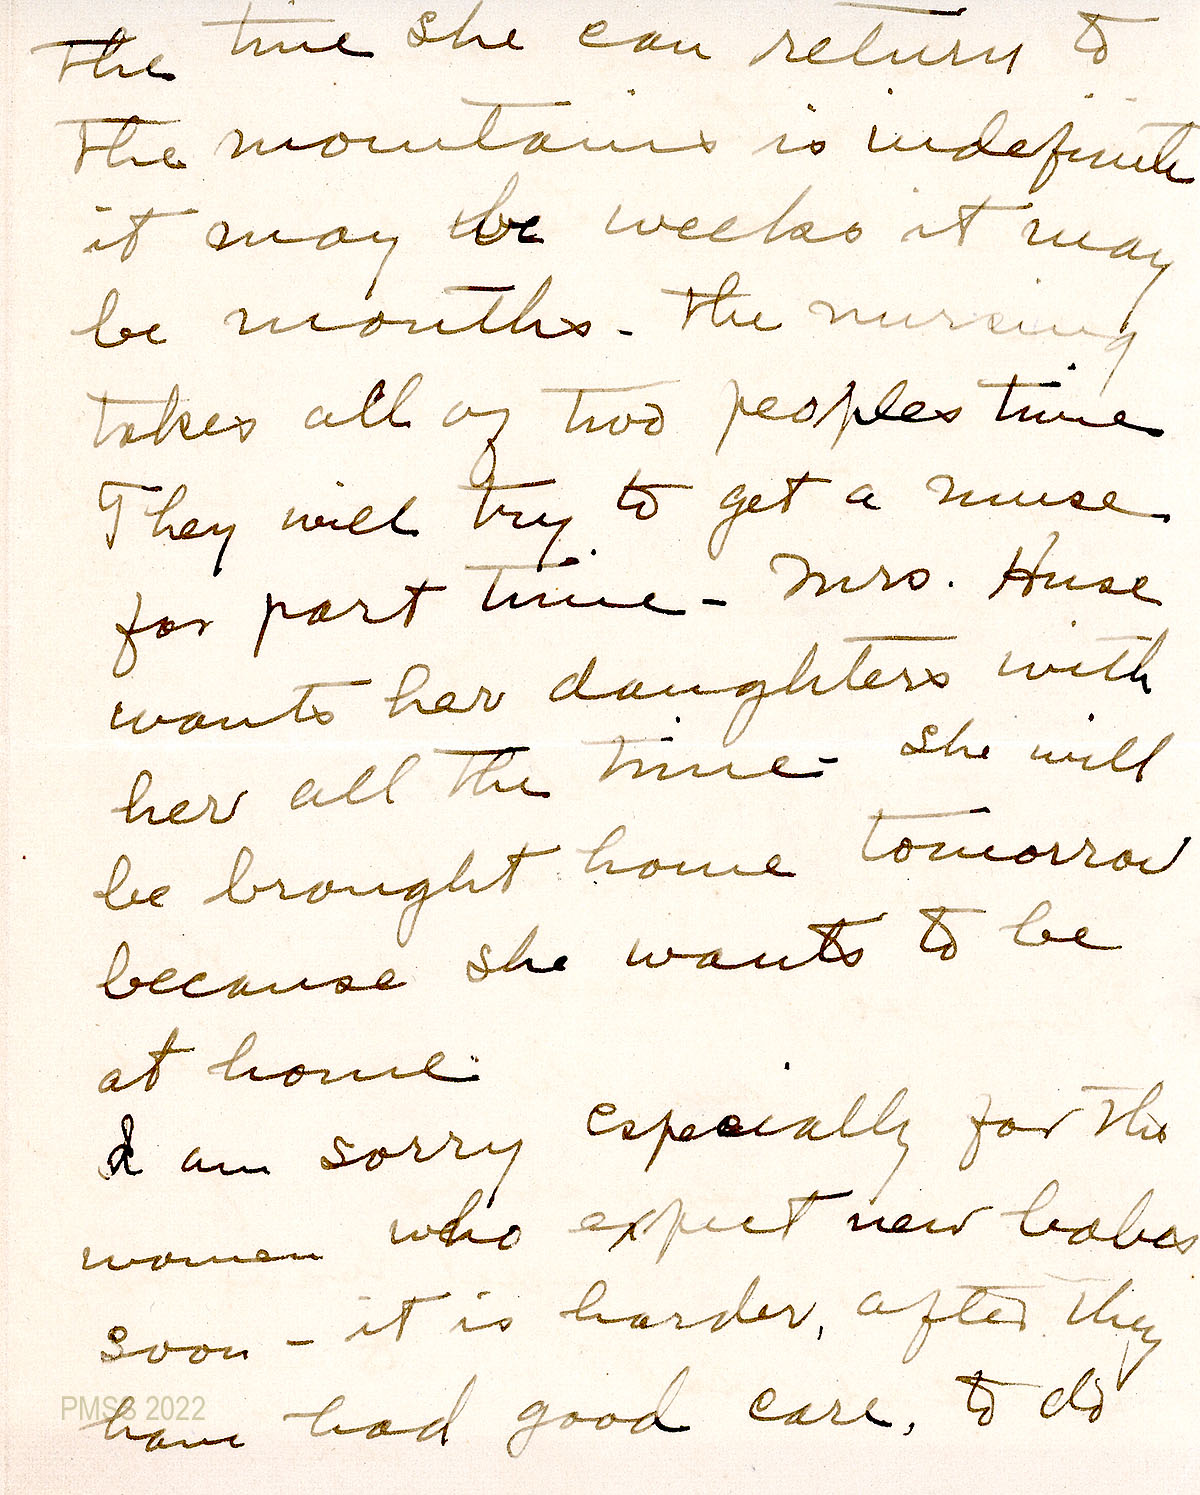 The time she can return to
the mountains is indefinite
it may be weeks it may
be months - The nursing
takes all of two peoples time
They will try to get a nurse
for part time - Mrs. Huse
wants her daughters with
her all the time - She will
be brought home tomorrow
because she wants to be
at home.
I am sorry especially for the
women who expect new babes
soon - it is harder, after they
have had good care, to do
PMSS 2022